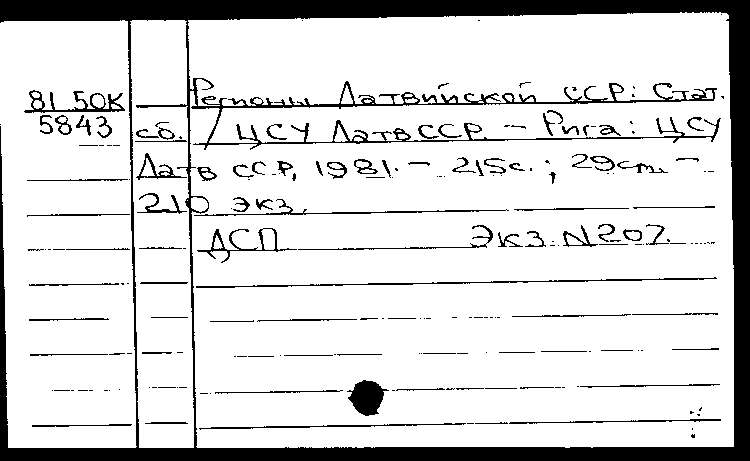 81 50К Регионы Латвийской ССР: Стат.
5843 сб. / ЦСУ ЛатвССР. - Рига: ЦСУ
Латв ССР, 1981. - 215с.; 29см. -
210 экз.
ДСП Экз. N207.